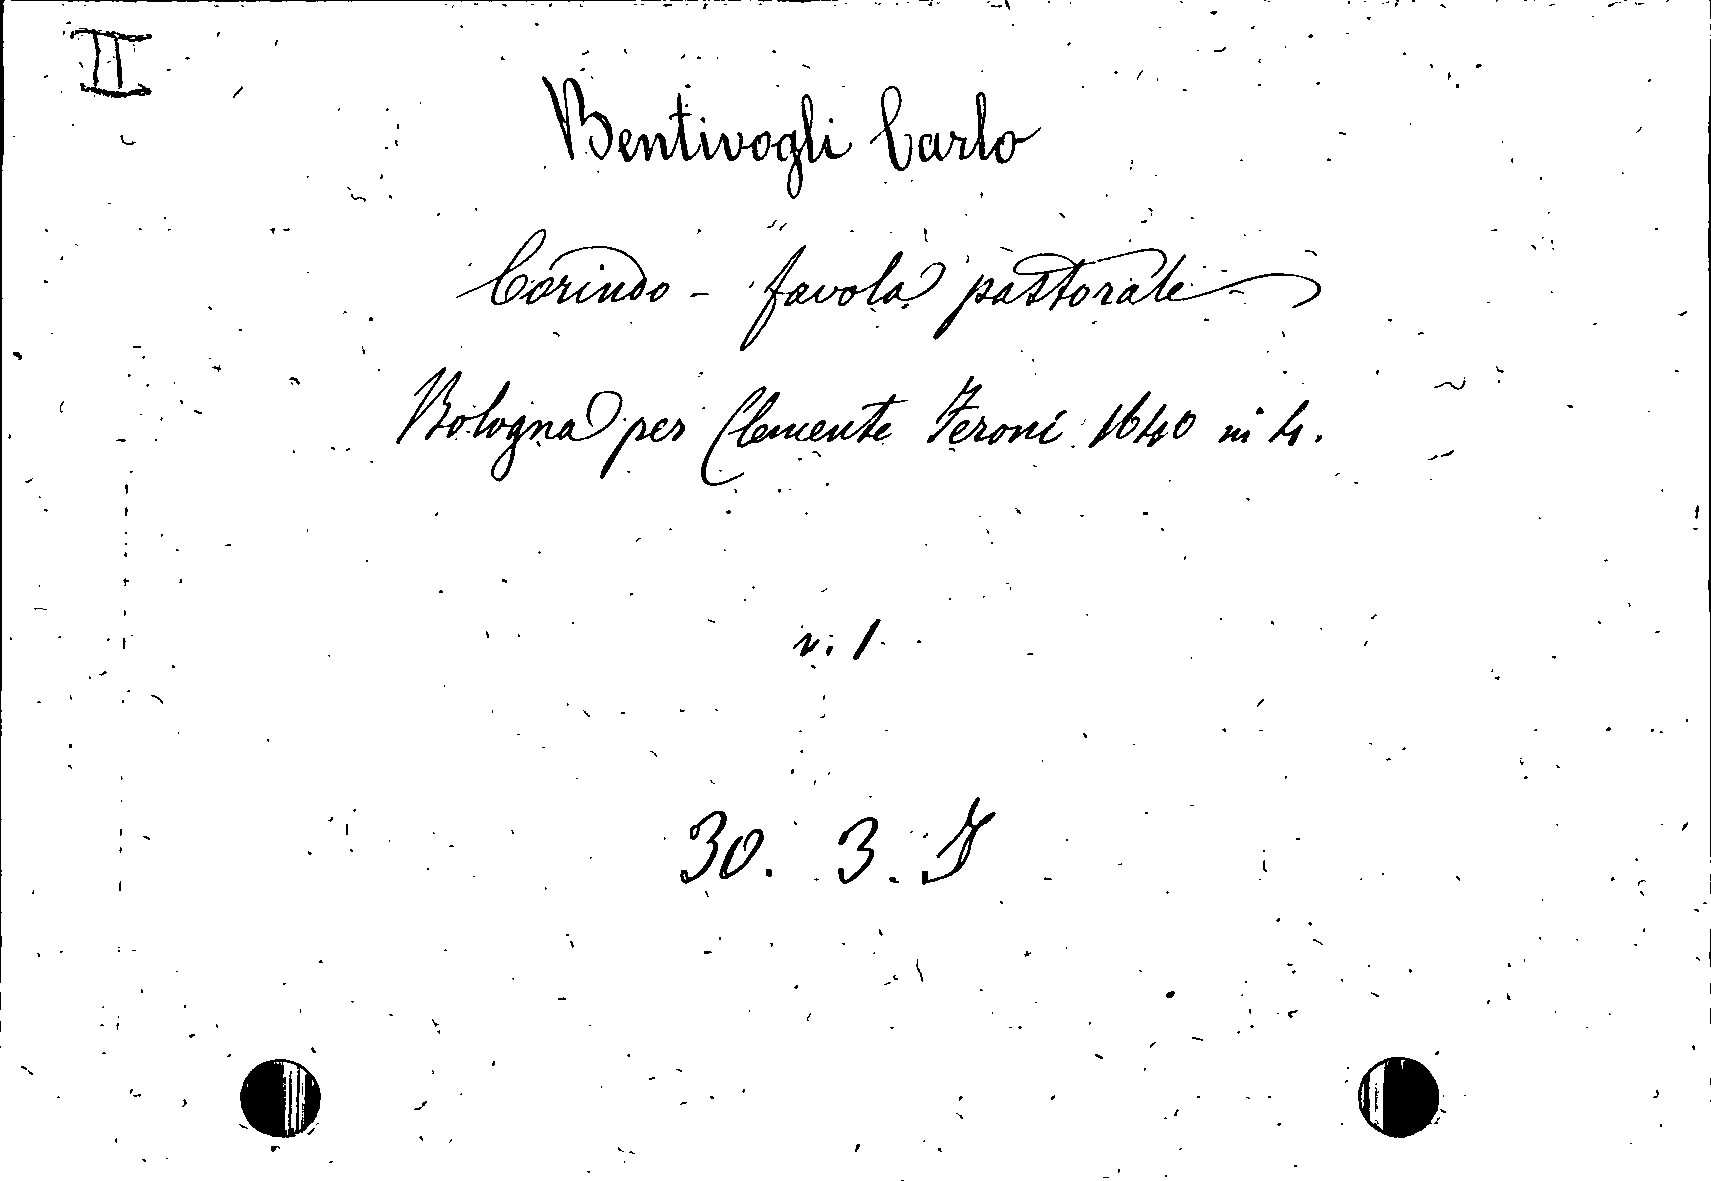 II
Bentivogli Carlo
Corindo - favola pastorale
Bologna per Clemente Feroni 1640 in 4.
v. 1
30. 3. I